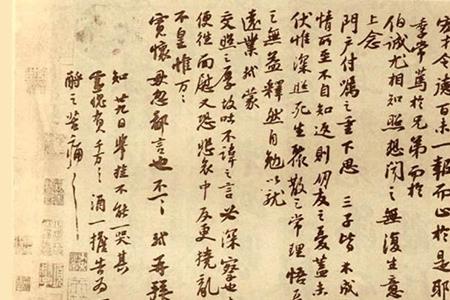 宏才令德百未一報而止於是耶
季常篤於兄弟而於
伯誠尤相知照想聞之無復生意
上念
門戶付囑之重下思三子皆不成
情所至不自知返則朋友之憂蓋未
伏惟深照死生聚散之常理悟
之無益釋然自勉以就
遠業軾蒙
交照之厚故吐不諱之言必深察也
便往面慰又恐悲哀中反更撓亂
不皇惟万〻
寬懷毋忽鄙言也不一〻軾再拜
知廿九日舉挂不能一哭其
靈愧負千万〻酒一擔告為
酹之苦痛〻